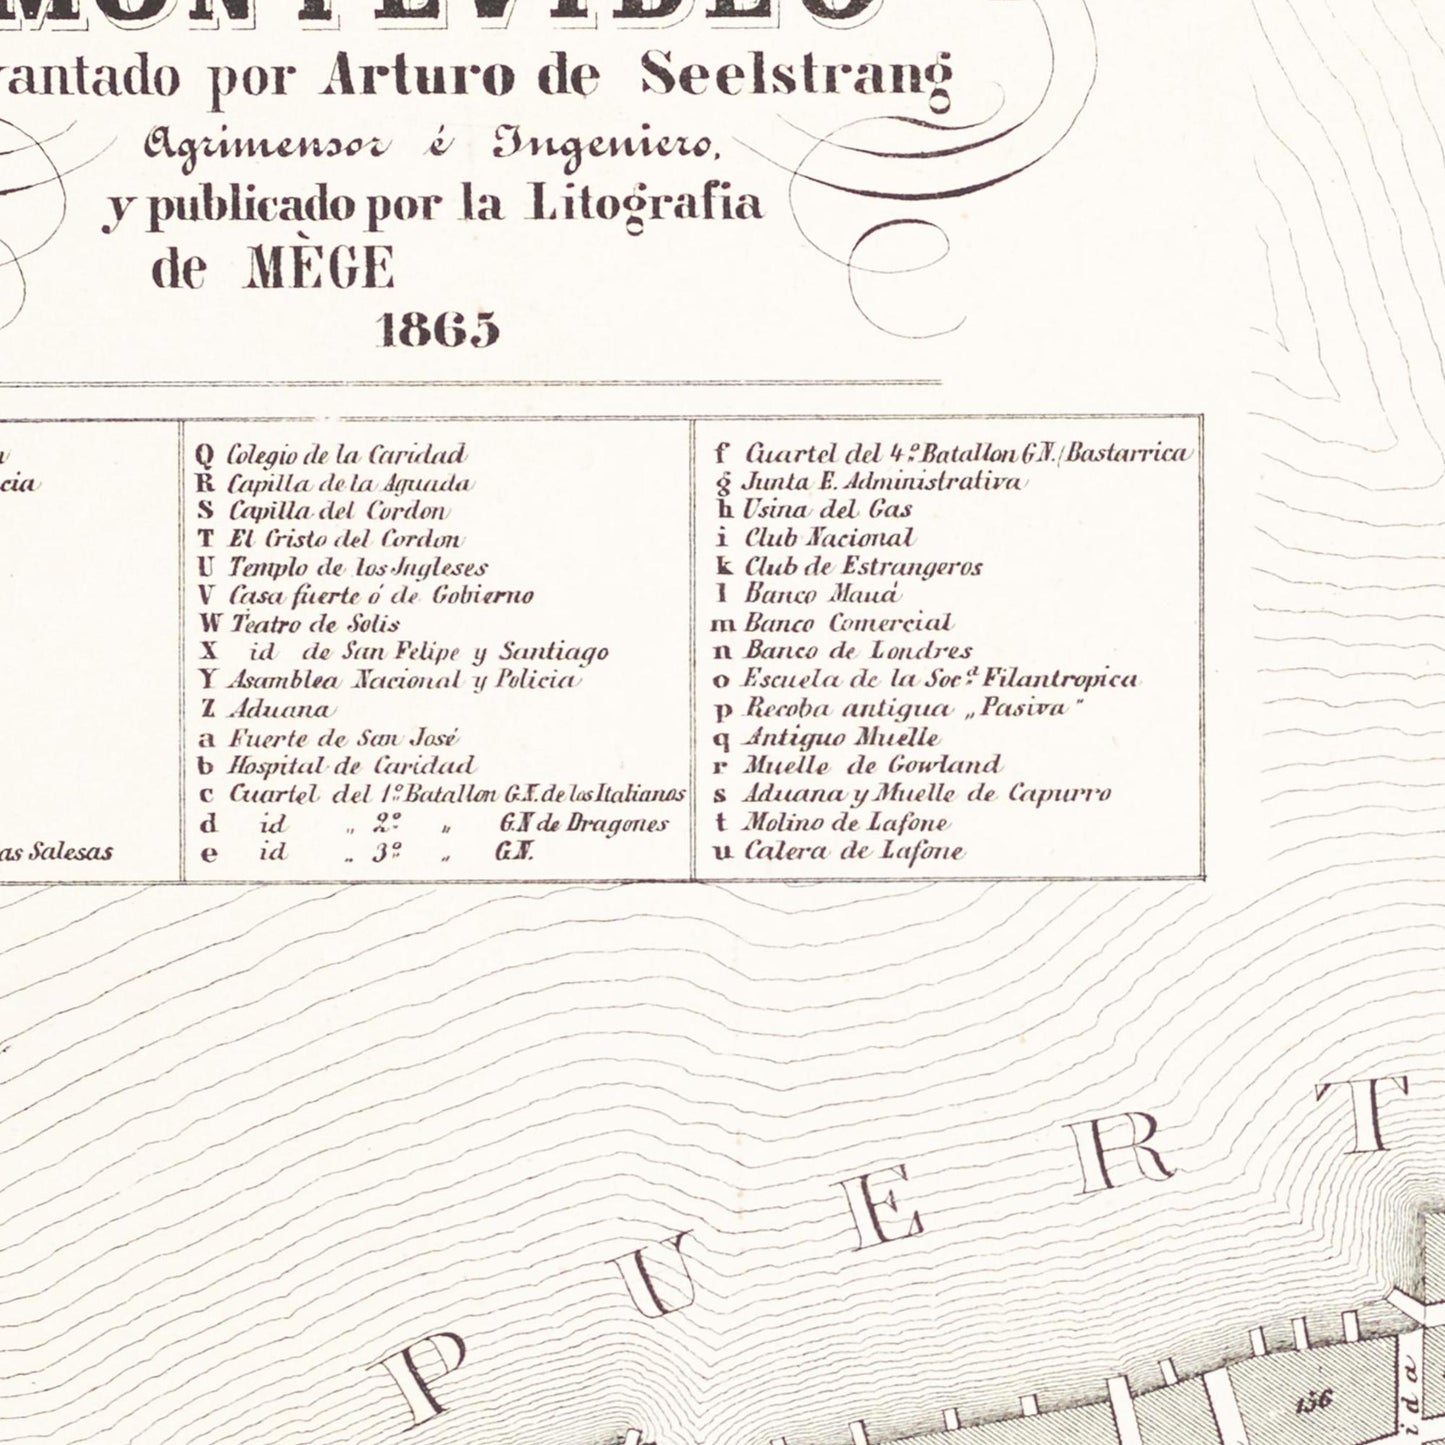 MONTEVIDEO
vantado por Arturo de Seelstrang
Agrimensor é Ingeniero,
y publicado por la Litografia
de MÈGE
1865
cia
as Salesas
Q Colegio de la Caridad
R Capilla de la Aguada
S Capilla del Cordon
T El Cristo del Cordon
U Templo de los Jngleses
V Casa fuerte ó de Gobierno
W Teatro de Solis
X id de San Felipe y Santiago
Y Asamblea Nacional y Policia
Z Aduana
a Fuerte de San José
b Hospital de Caridad
c Cuartel del 1º Batallon G.N. de los Italianos
d id „ 2º „ G.N de Dragones
e id „ 3º „ G.N.
f Cuartel del 4º Batallon G.N. (Bastarrica
g Junta E. Administrativa
h Usina del Gas
i Club Nacional
k Club de Estrangeros
l Banco Mauá
m Banco Comercial
n Banco de Londres
o Escuela de la Socd. Filantropica
p Recoba antigua „Pasiva"
q Antiguo Muelle
r Muelle de Gowland
s Aduana y Muelle de Capurro
t Molino de Lafone
u Calera de Lafone
PUERT
156
api